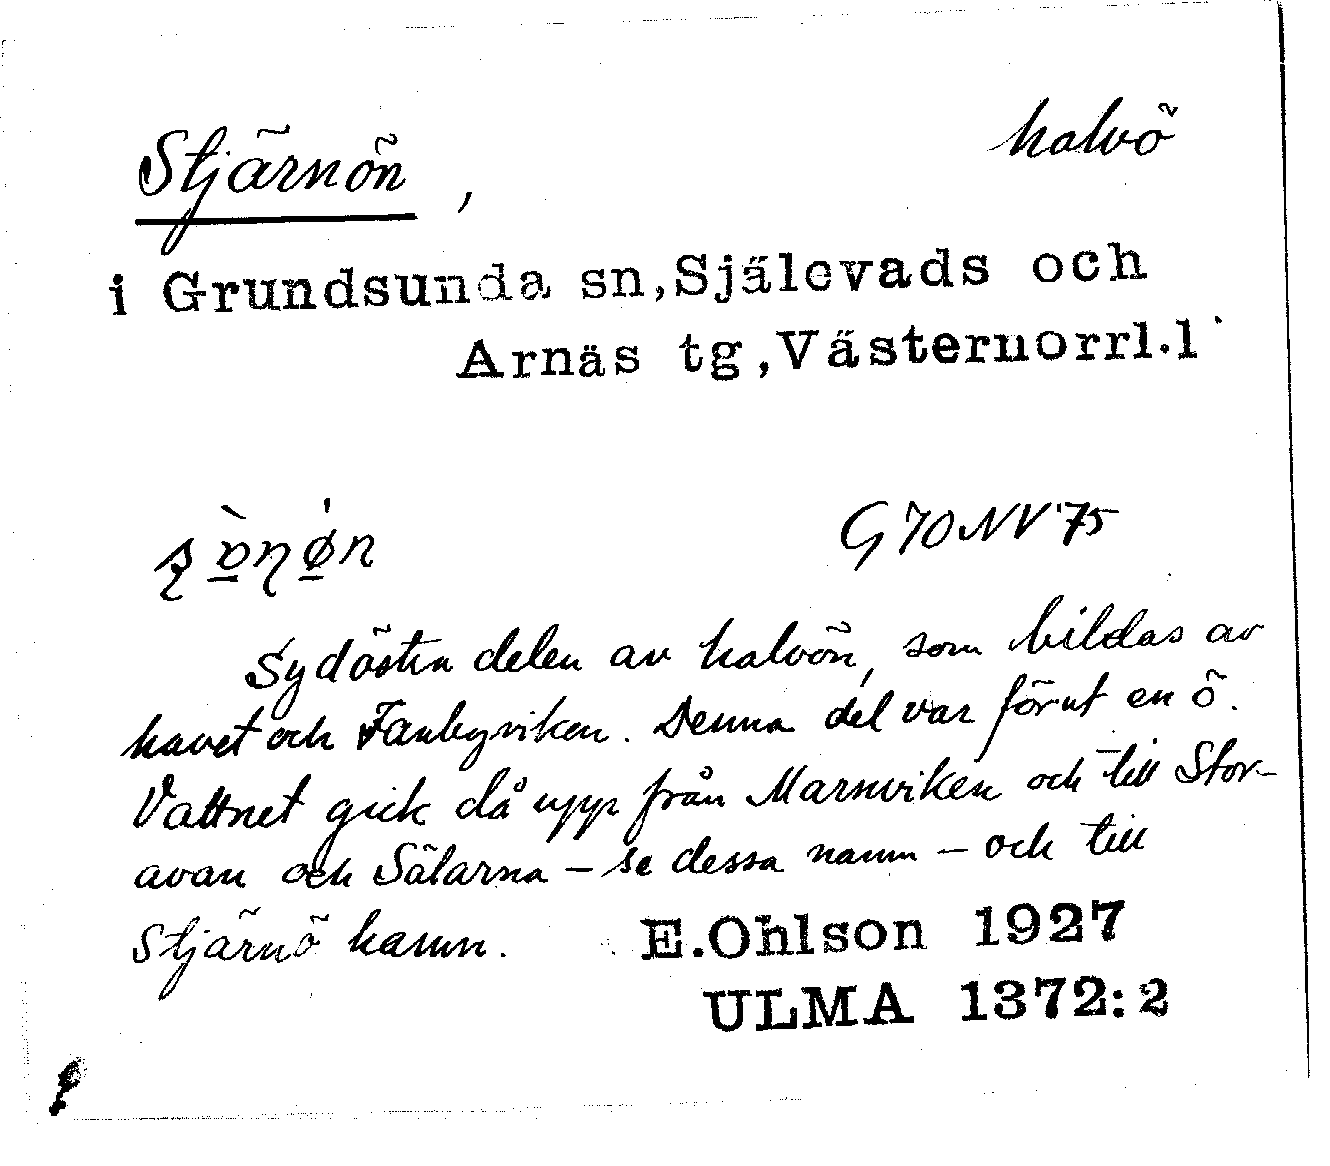 Stjärnön, halvö
i Grundsunda sn, Själevads och
Arnäs tg, Västernorrl.l
G 70 NV 75
Sydöstra delen av halvön, som bildas av
havet och Fanbyviken. Denna del var förut en ö.
Vattnet gick då upp från Marsviken och till Stor-
avan och Sälarna – se dessa namn – och till
Stjärnö hamn.
E.Ohlson 1927
ULMA 1372:2